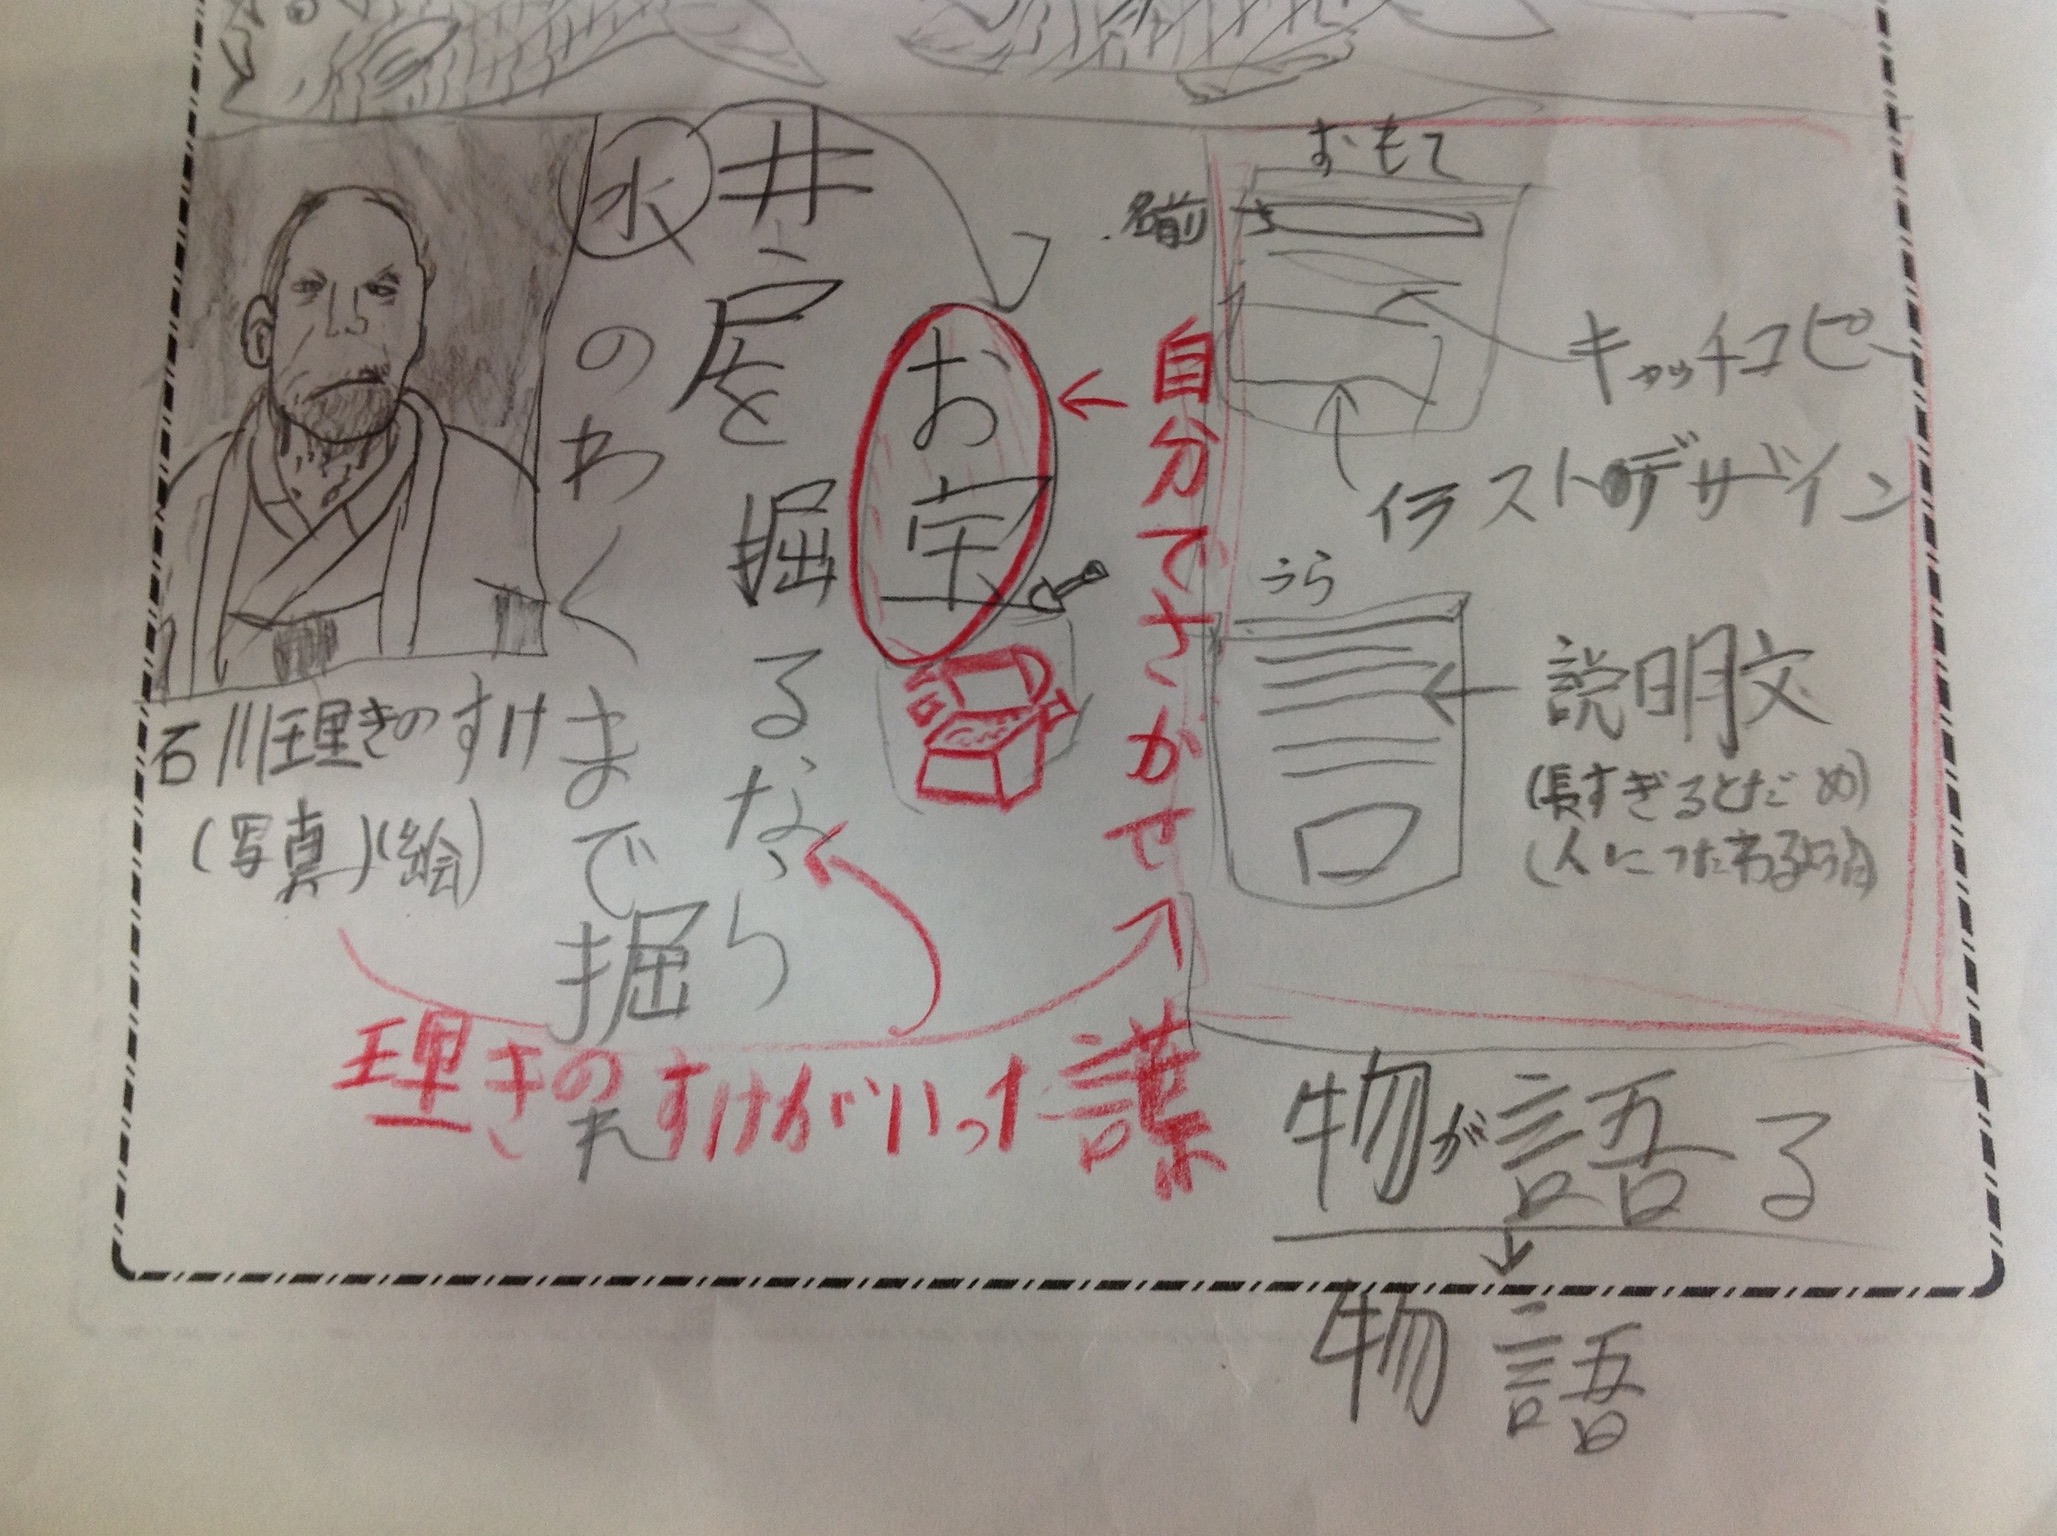 おもて
名前
キャッチコピー
イラストデザイン
うら
説明文
(長すぎるとだめ)
(人につたわるように)
物が語る
物語
自分でさがせ
お宝
井戸を掘るなら
水のわくまで掘れ
石川理きのすけ
(写真)(絵)
理きのすけがいった謎